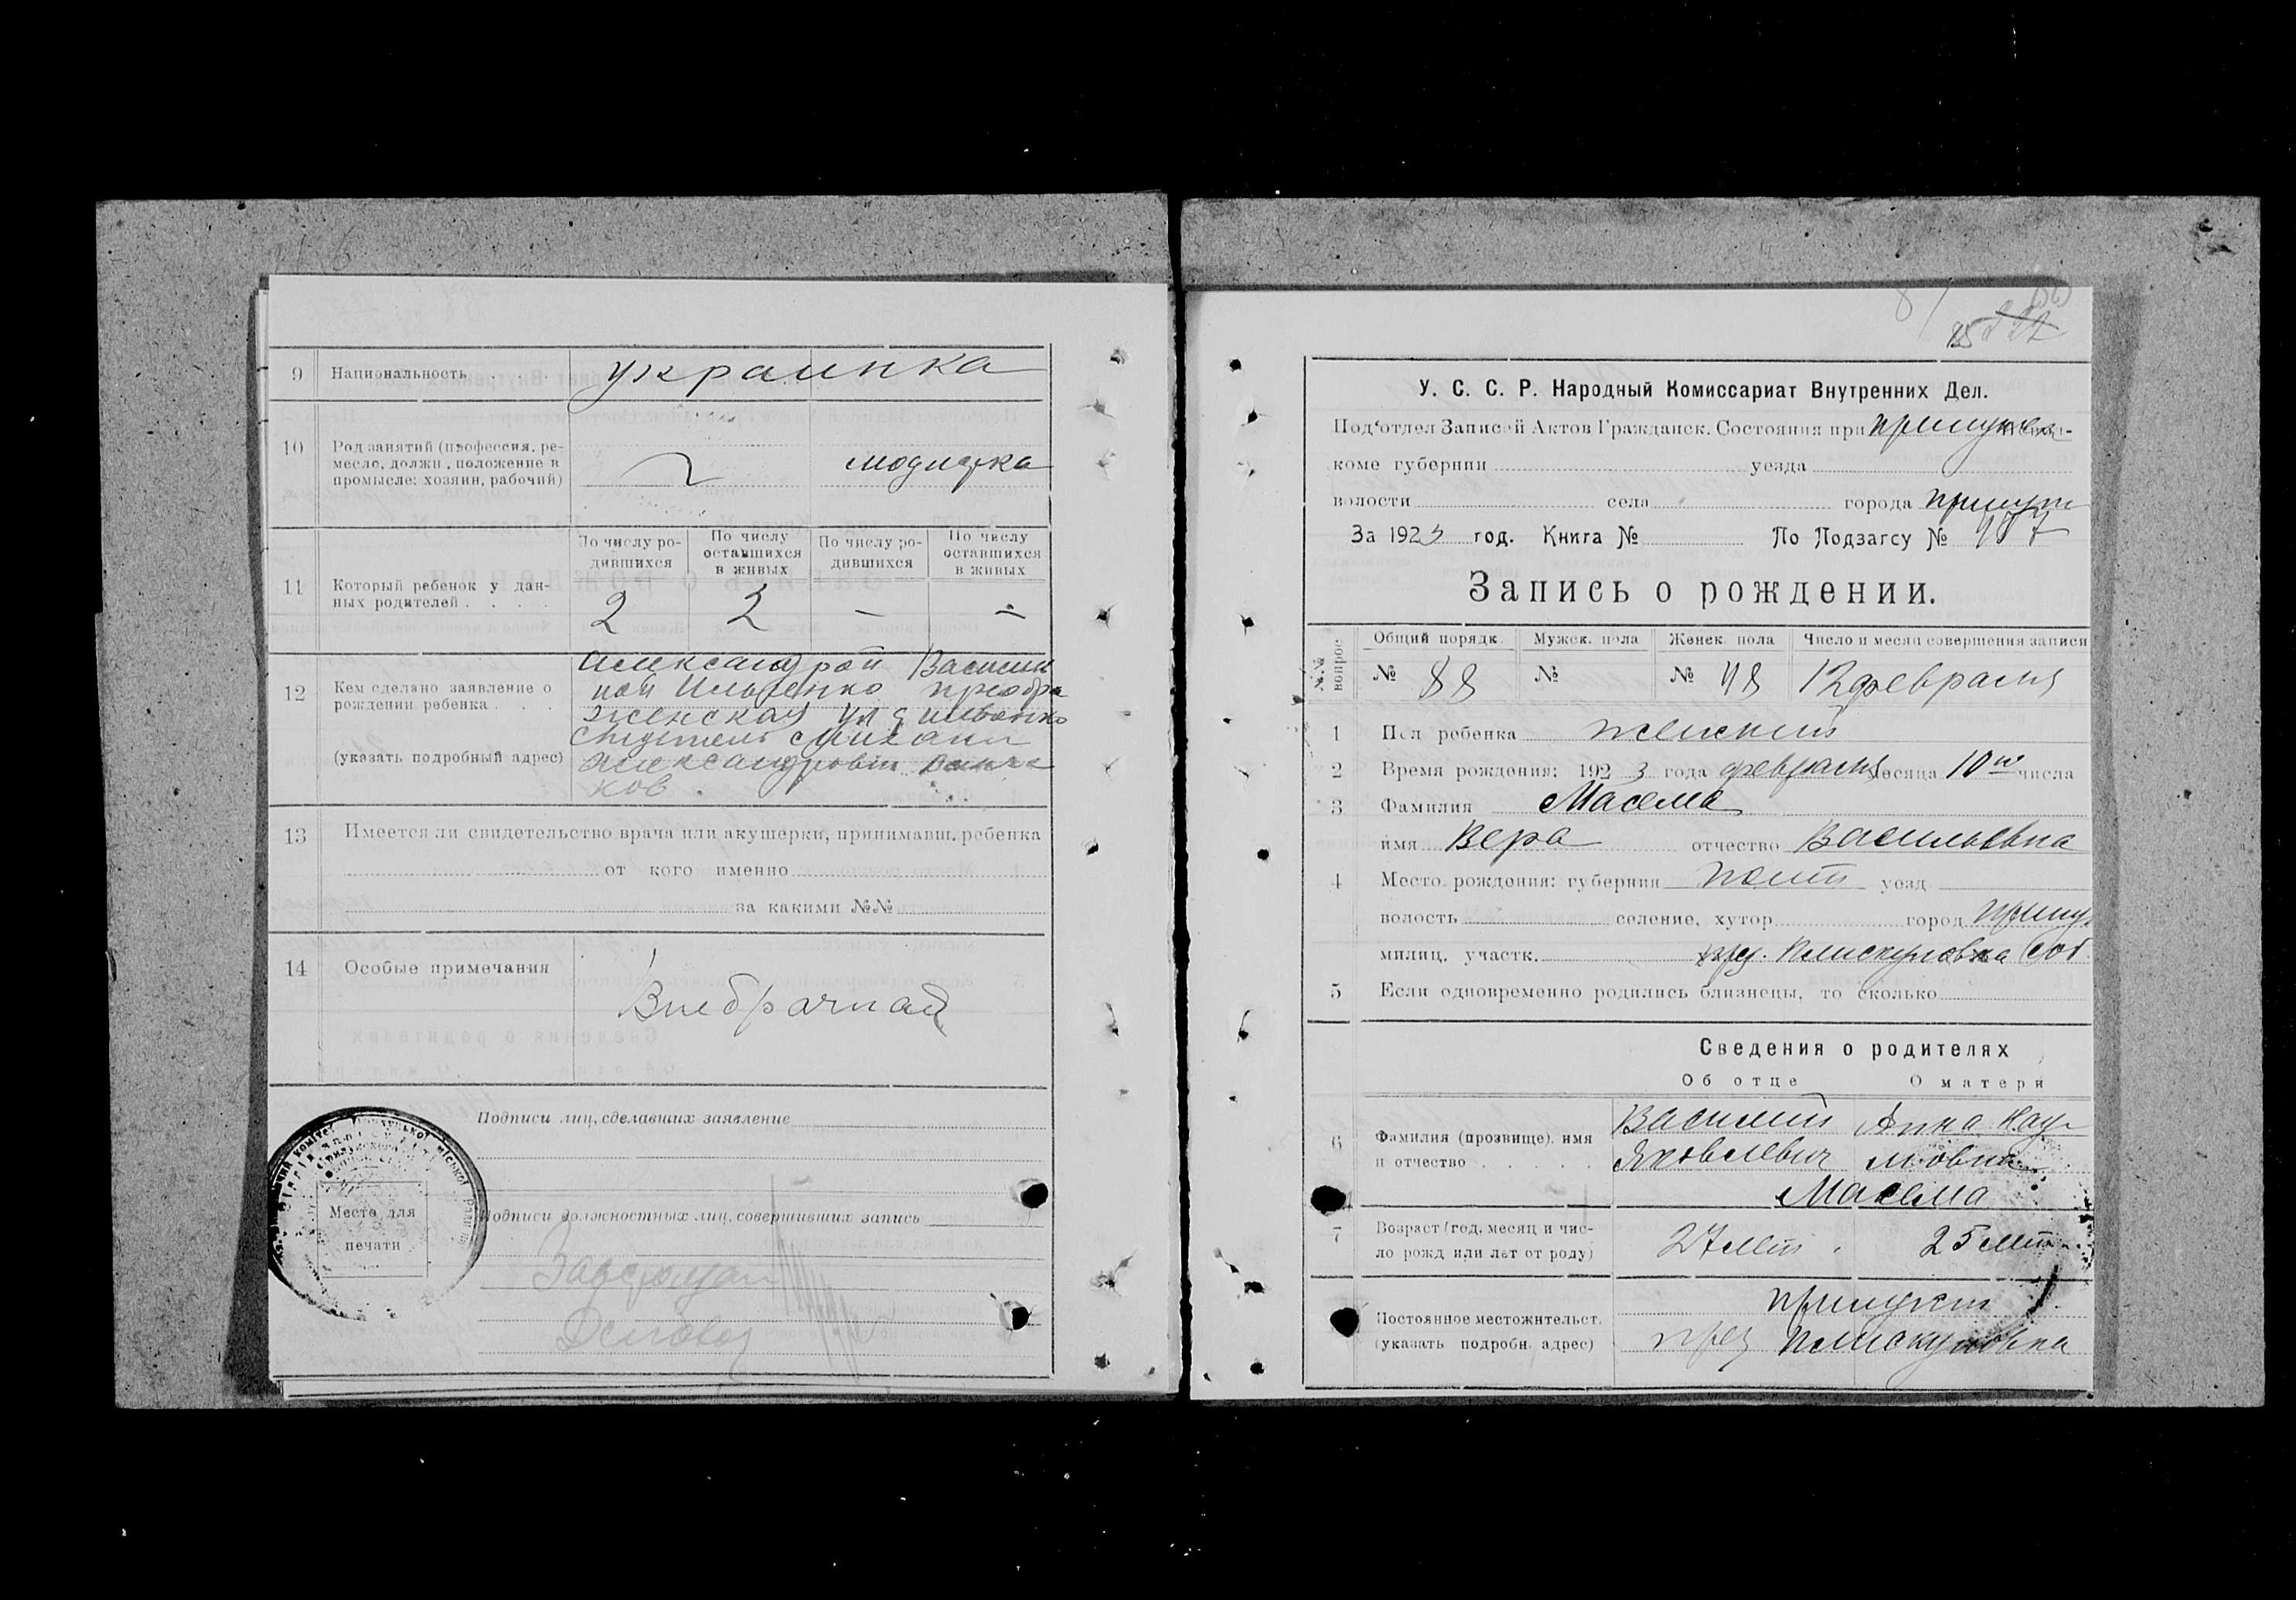 9 Национальность . . . украинка
10 Род занятий (профессия, ре-
месло, должн., положение в
промысле: хозяин, рабочий)
модистка
По числу ро-
дившихся
По числу
оставшихся
в живых
По числу ро-
дившихся
По числу
оставшихся
в живых
11 Который ребенок у дан-
ных родителей . . . .
2 2 — —
12 Кем сделано заявление о
рождении ребенка . . .
(указать подробный адрес)
Александрой Василь
ной Ильченко преобра
женская ул
Михаил
Александрович
ков.
13 Имеется ли свидетельство врача или акушерки, принимавш. ребенка
от кого именно
за какими №№
14 Особые примечания
Внебрачная
Подписи лиц, сделавших заявление
Место для
печати
Подписи должностных лиц, совершивших запись
У. С. С. Р. Народный Комиссариат Внутренних Дел.
Под'отдел Записей Актов Гражданск. Состояния при
коме губернии уезда
волости села города
За 1923 год. Книга № По Подзагсу № 187
Запись о рождении.
№№ вопрос.
Общий порядк. Мужск. пола Женск. пола Число и месяц совершения записи
№ 88 № № 48 12 февраля
1 Пол ребенка женский
2 Время рождения: 1923 года февраля месяца 10го числа
3 Фамилия Масема
имя Вера отчество Васильевна
4 Место рождения: губернии Полт уезд
волость селение, хутор город Прилук
милиц. участк. пред. Плискуновка
5 Если одновременно родились близнецы, то сколько
Сведения о родителях
Об отце О матери
6 Фамилия (прозвище), имя
и отчество . . . . .
Василий
Яковлевич
Анна Нау
мовна
Масема
7 Возраст (год, месяц и чис-
ло рожд. или лет от роду)
27 лет. 25 лет
Постоянное местожительст.
(указать подробн. адрес)
Прилуки
пред Плискуновка